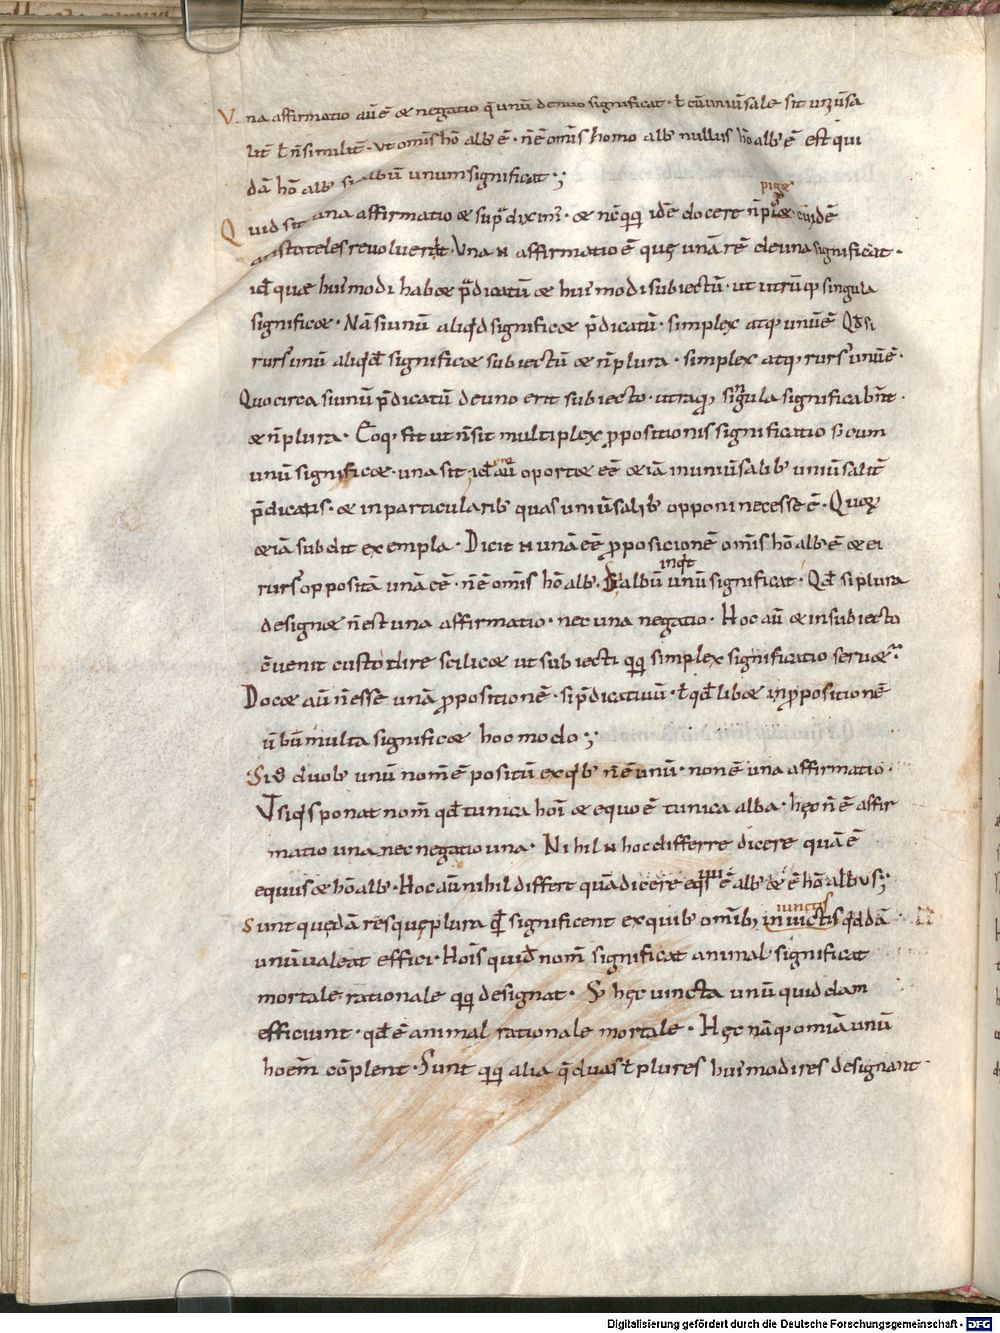 Vna affirmatio aūē & negatio q̄ unū deuno significat · ł cū uniūsale sit uniūsa
lit̄ ł n̄ similit̄ · ut omīs hō albꝰ ē · n̄ ē omīs homo albꝰ nullus hō albꝰ ē est qui
dā hō albꝰ si albū unum significat·;
Quid sit una affirmatio & sup̄ diximꝰ · & nc̄ qq; idē docere n̄ pig&
aristoteles · Una affirmatio ē quę unā rē de una significat ·
id quæ huiꝰmodi hab& p̄dicatū & huiꝰmodi subiectū · ut utrūq; singula
signific& · Nā si unū aliqd signific& p̄dicatū · simplex atq; unū ē Qd̄ si
rursꝰ unū aliqd̄ signific& subiectū & n̄ plura · simplex atq; rursꝰ unū ē ·
Quocirca si unū p̄dicatū deuno erit subiecto · utraq; singula significabn̄t ·
& n̄ plura · Eoq; fit ut n̄ sit multiplex ꝓpositionis significatio s; cum
unū signific& · una sit · id aū oport& eē &iā in uniūsalibꝰ uniūsalit̄
p̄dicatis · & in particularibꝰ quas uniūsalibꝰ opponi necesse ē · Quoꝝ
&iā subdit exempla · Dicit unā eē ꝓposicionē omīs hō albꝰ ē & ei
rursꝰ opposit̄ā unā eē · n̄ ē omīs hō albꝰ · Si albū inqͥt unū significat · Qd̄ si plura
design& n̄ est una affirmatio · nec una negatio · Hoc aū & in subiecto
c̄uenit custodire scilic& ut subiecti qq; simplex significatio seru&ͬ
Doc& aū n̄ esse unā ꝓpositionē · si p̄dicatiuū · ł qd̄ lib& in ꝓpositionē
ūbū multa signific& hoc modo·;
Si ū duobꝰ unū nom̄ ē positū ex qͥbꝰ n̄ ē unū · non ē una affirmatio ·
Ut siqͥs ponat nom̄ qd̄ tunica hoi & equo ē tunica alba · hęc n̄ ē affir
matio una nec negatio una · Nihil hoc differre dicere quā ē
equus & hō albꝰ · Hoc aū nihil differt quā dicere eqͥs ē albꝰ & ē hō albus;
Sunt quędā res quę plura qd̄ significent ex quibꝰ omībꝫ iniuctis iunctis qd̄dā
unū ualeat effici · Hois quid̄ nom̄ significat animal significat
mortale rationale qq; designat · S; hęc uincta unū quiddam
efficiunt · qd̄ ē animal rationale mortale · Hęc nāq; omiā unū
hoem̄ cōplent · Sunt qq; alia q̄ duas ł plures huiꝰmodi res designant
Digitalisierung gefördert durch die Deutsche Forschungsgemeinschaft - DFG